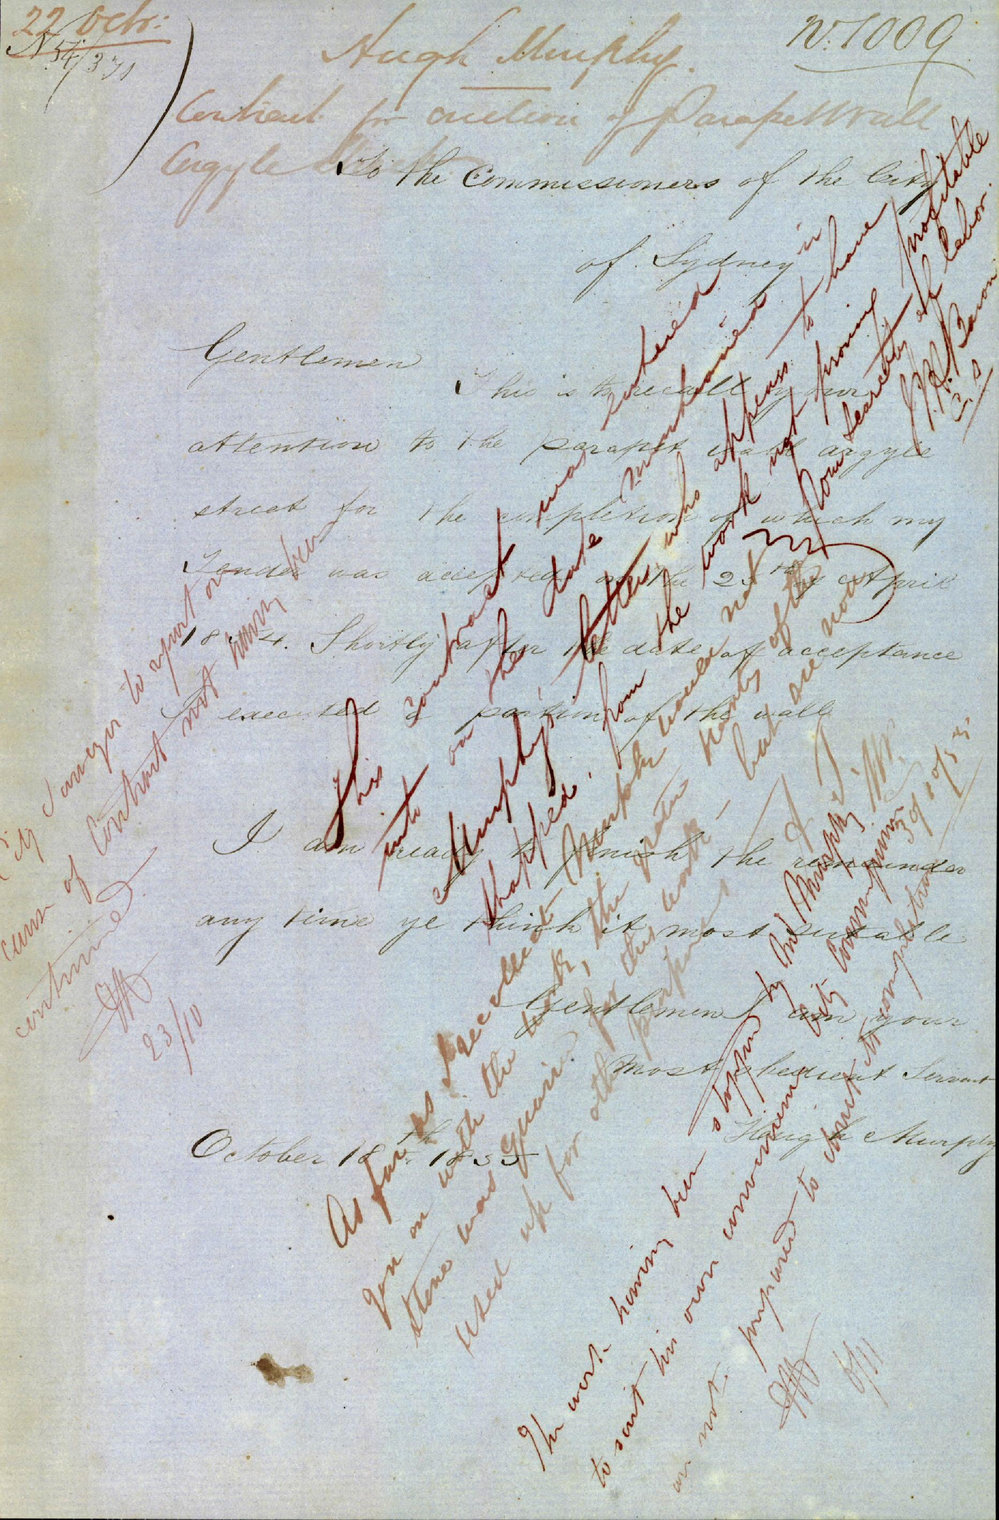 22 Octr:
No. 54/371
Hugh Murphy.
No. 1009
Contract for erection of Parapet Wall
Argyle Street
To the Commissioners of the City
of Sydney
Gentlemen
This is to recall your
attention to the parapet wall argyle
street for the completion of which my
Tender was accepted on the 25th of April
1854. Shortly after the date of acceptance
I executed a portion of the wall
I am ready to finish the remainder
any time ye think it most suitable
Gentlemen I am your
most obedient Servant
Hugh Murphy
October 18th 1855
City Surveyor to report on
cause of Contract not having been
continued
23/10
This contract was entered
into on the date mentioned in
Murphy's letter who appears to have
stopped, from the work not proving profitable
from scarcity of labor.
As far as I recollect Murphy would not
go on with the work, the
stone was quarried for this work but
used up for other purposes
The work having been stopped by Mr Murphy
to suit his own convenience City Commissioners
are not prepared to admit its completion
6/11